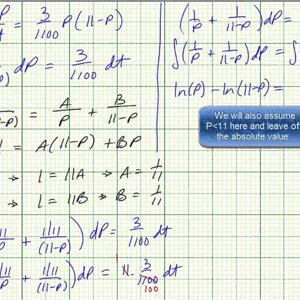 P/t = 3/1100 P(11-P)
-P) dP = 3/1100 dt
-P) = A/P + B/11-P
1 = A(11-P) + BP
→ 1 = 11A → A = 1/11
→ 1 = 11B → B = 1/11
1/11/P + 1/11/(11-P)) dP = 3/1100 dt
1/11/P + 1/11/(11-P)) dP = 11 · 3/1100 dt
100
(1/P + 1/11-P) dP =
∫(1/P + 1/11-P) dP = ∫
ln(P) - ln(11-P) =
We will also assume
P<11 here and leave of
the absolute value